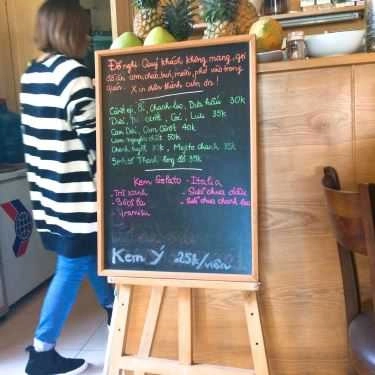 Đề nghị Quý khách không mang, gọi
đồ ăn, cơm, cháo, bún, miến, phở vào trong
quán. Xin chân thành cảm ơn!
Cà rốt ép, ổi, chanh leo, Dưa hấu 30k
Dứa, cà rốt, Lựu 35k
Cam Dứa, Cam Cà rốt 40k
Cam nguyên chất 50k
Chanh tuyết 30k, Mojito chanh 35k
Sinh tố Thanh long đỏ 35k
Kem Gelato - Italia
- Trà xanh - Sữa chua dâu
- Socola - Sữa chua chanh leo
- Tiramisu
Kem Ý 25k/viên